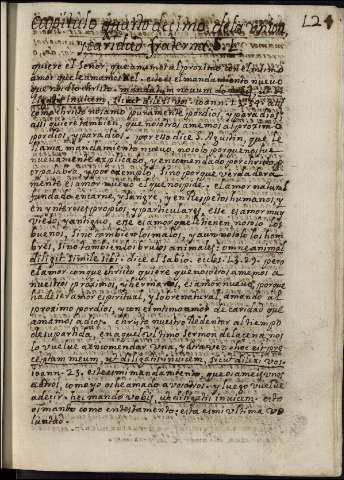 124
Capitulo quarto decimo de la union,
y caridad fraterna. S. 1.
quiere el Señor, que amemos al proximo con el mismo
amor que le amamos a el. este es el mandamiento nuevo
que nos dio christo. mandatum novum do vobis, ut
diligatis invicem, sicut dilexi vos. Joann. 13. y assi
como christo nos amo puramente por dios, y para dios,
assi quiere tambien, que nosotros amemos al proximo
por dios, y para dios. y por esso dice S. Aguſtin, que le
llama mandamiento nuevo, no solo porque nos fue
nuevamente explicado, y encomendado por christo
por palabra, y por exemplo; Sino porque verdadera
mente es amor nuevo el que nos pide. el amor natural
fundado en carne, y sangre, y en respetos humanos, y
en intereses propios, y particulares, esse es amor muy
viejo, y antiguo. esse es amor que le tienen no solo los
buenos, Sino tambien los malos, y aun no solo los hom
bres, Sino tambien los brutos animales: omne animal
diligit simile sibi. dice el Sabio. eccles. 13. 29. pero
el amor con que christo quiere que nosotros amemos a
nuestros proximos, y hermanos, es amor nuevo, porque
ha de ser amor espiritual, y sobrenatural, amando al
proximo por dios, y con el mismo amor de caridad que
amamos a dios. christo nuestro Redentor al tiempo
de la partida, en aquel ultimo Sermon de la cena, nos
lo vuelve a encomendar una, y otra vez: hoc est præ
ceptum meum, ut diligatis invicem, sicut dilexi vos.
Joann. 15. este es mi mandamiento, que os ameis unos
a otros, como yo os he amado a vosotros. y luego vuelve
a decir. hæc mando vobis, ut diligatis invicem. esto
os mando como en testamento: esta es mi ultima vo
luntad.